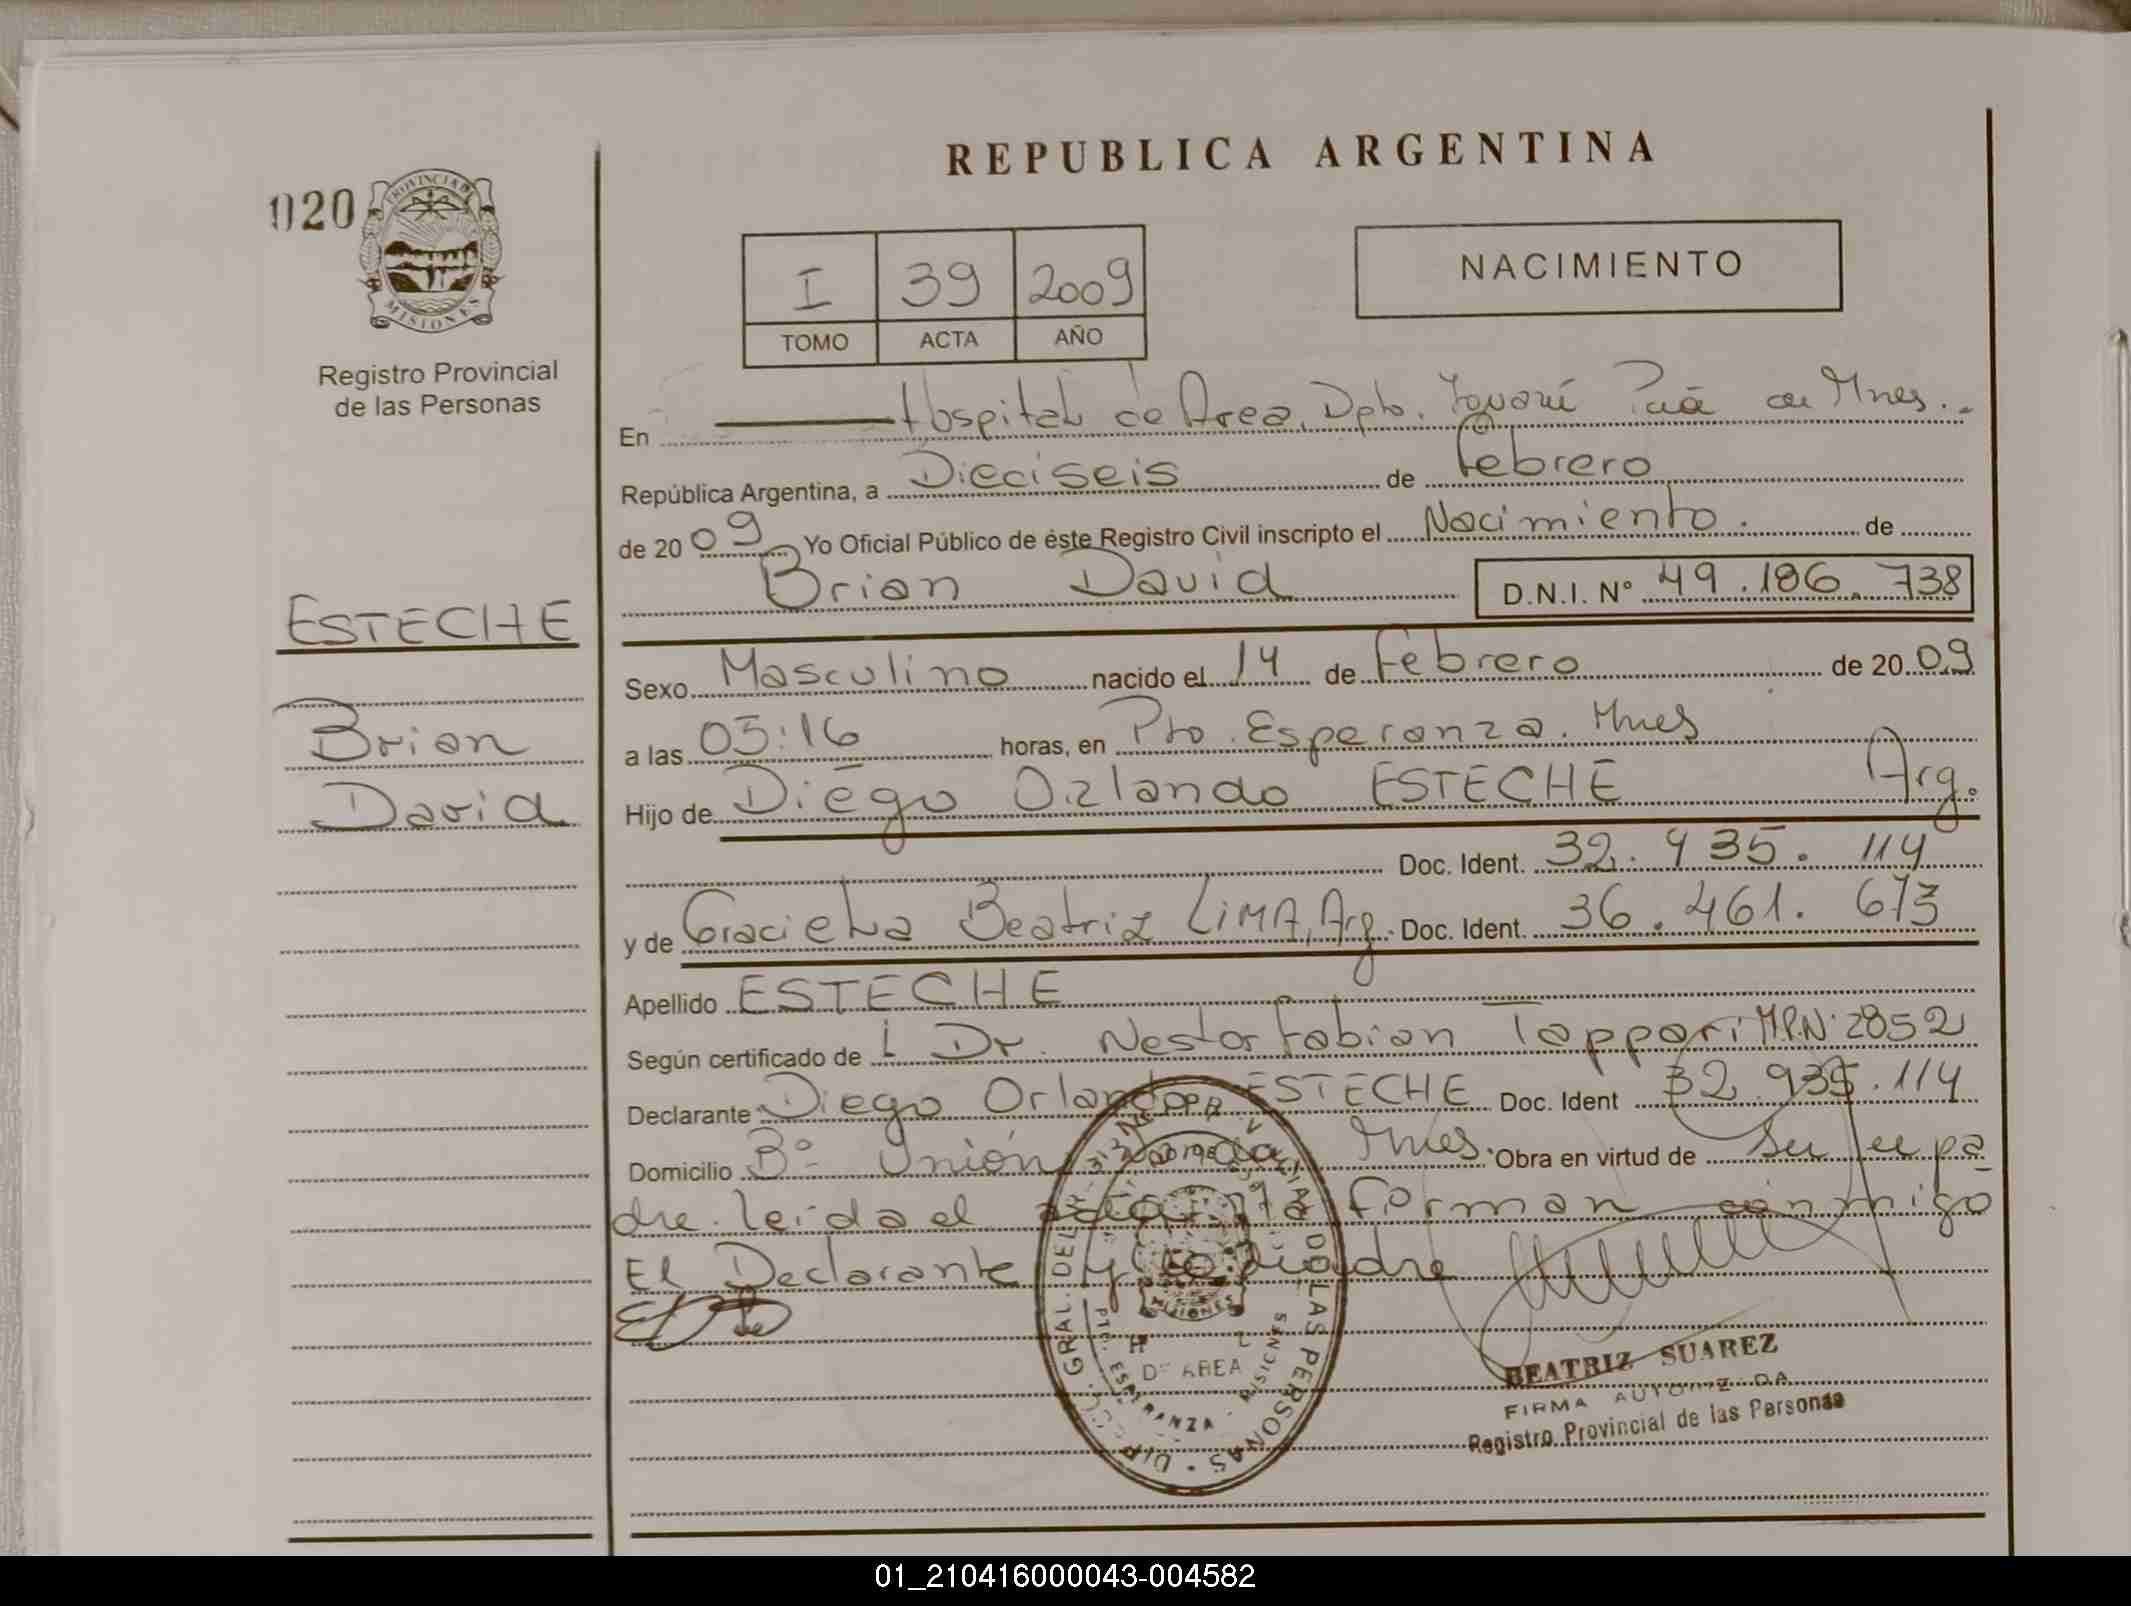 REPUBLICA ARGENTINA
020
PROVINCIA DE
MISIONES
Registro Provincial
de las Personas
I 39 2009
TOMO ACTA AÑO
NACIMIENTO
En Hospital de Area, Dpto. Iguazú Mnes.
República Argentina, a Dieciseis de Febrero
de 2009 Yo Oficial Público de éste Registro Civil inscripto el Nacimiento. de
Brian David D.N.I. Nº 49.186.738
ESTECHE
Brian
David
Sexo Masculino nacido el 14 de Febrero de 2009
a las 05:16 horas, en Pto. Esperanza. Mnes
Hijo de Diego Orlando ESTECHE Arg.
Doc. Ident. 32.935.114
y de Graciela Beatriz LIMA, Arg. Doc. Ident. 36.461.673
Apellido ESTECHE
Según certificado de l Dr. Nestor Fabian Tappari M.P.N° 2852
Declarante Diego Orlando ESTECHE Doc. Ident 32.935.114
Domicilio Bº Unión Mnes. Obra en virtud de su
dre. leída el acta forman conmigo
El Declarante y la Madre
DE AREA
MISIONES
BEATRIZ SUAREZ
FIRMA AUTORIZADA
Registro Provincial de las Personas
01_210416000043-004582